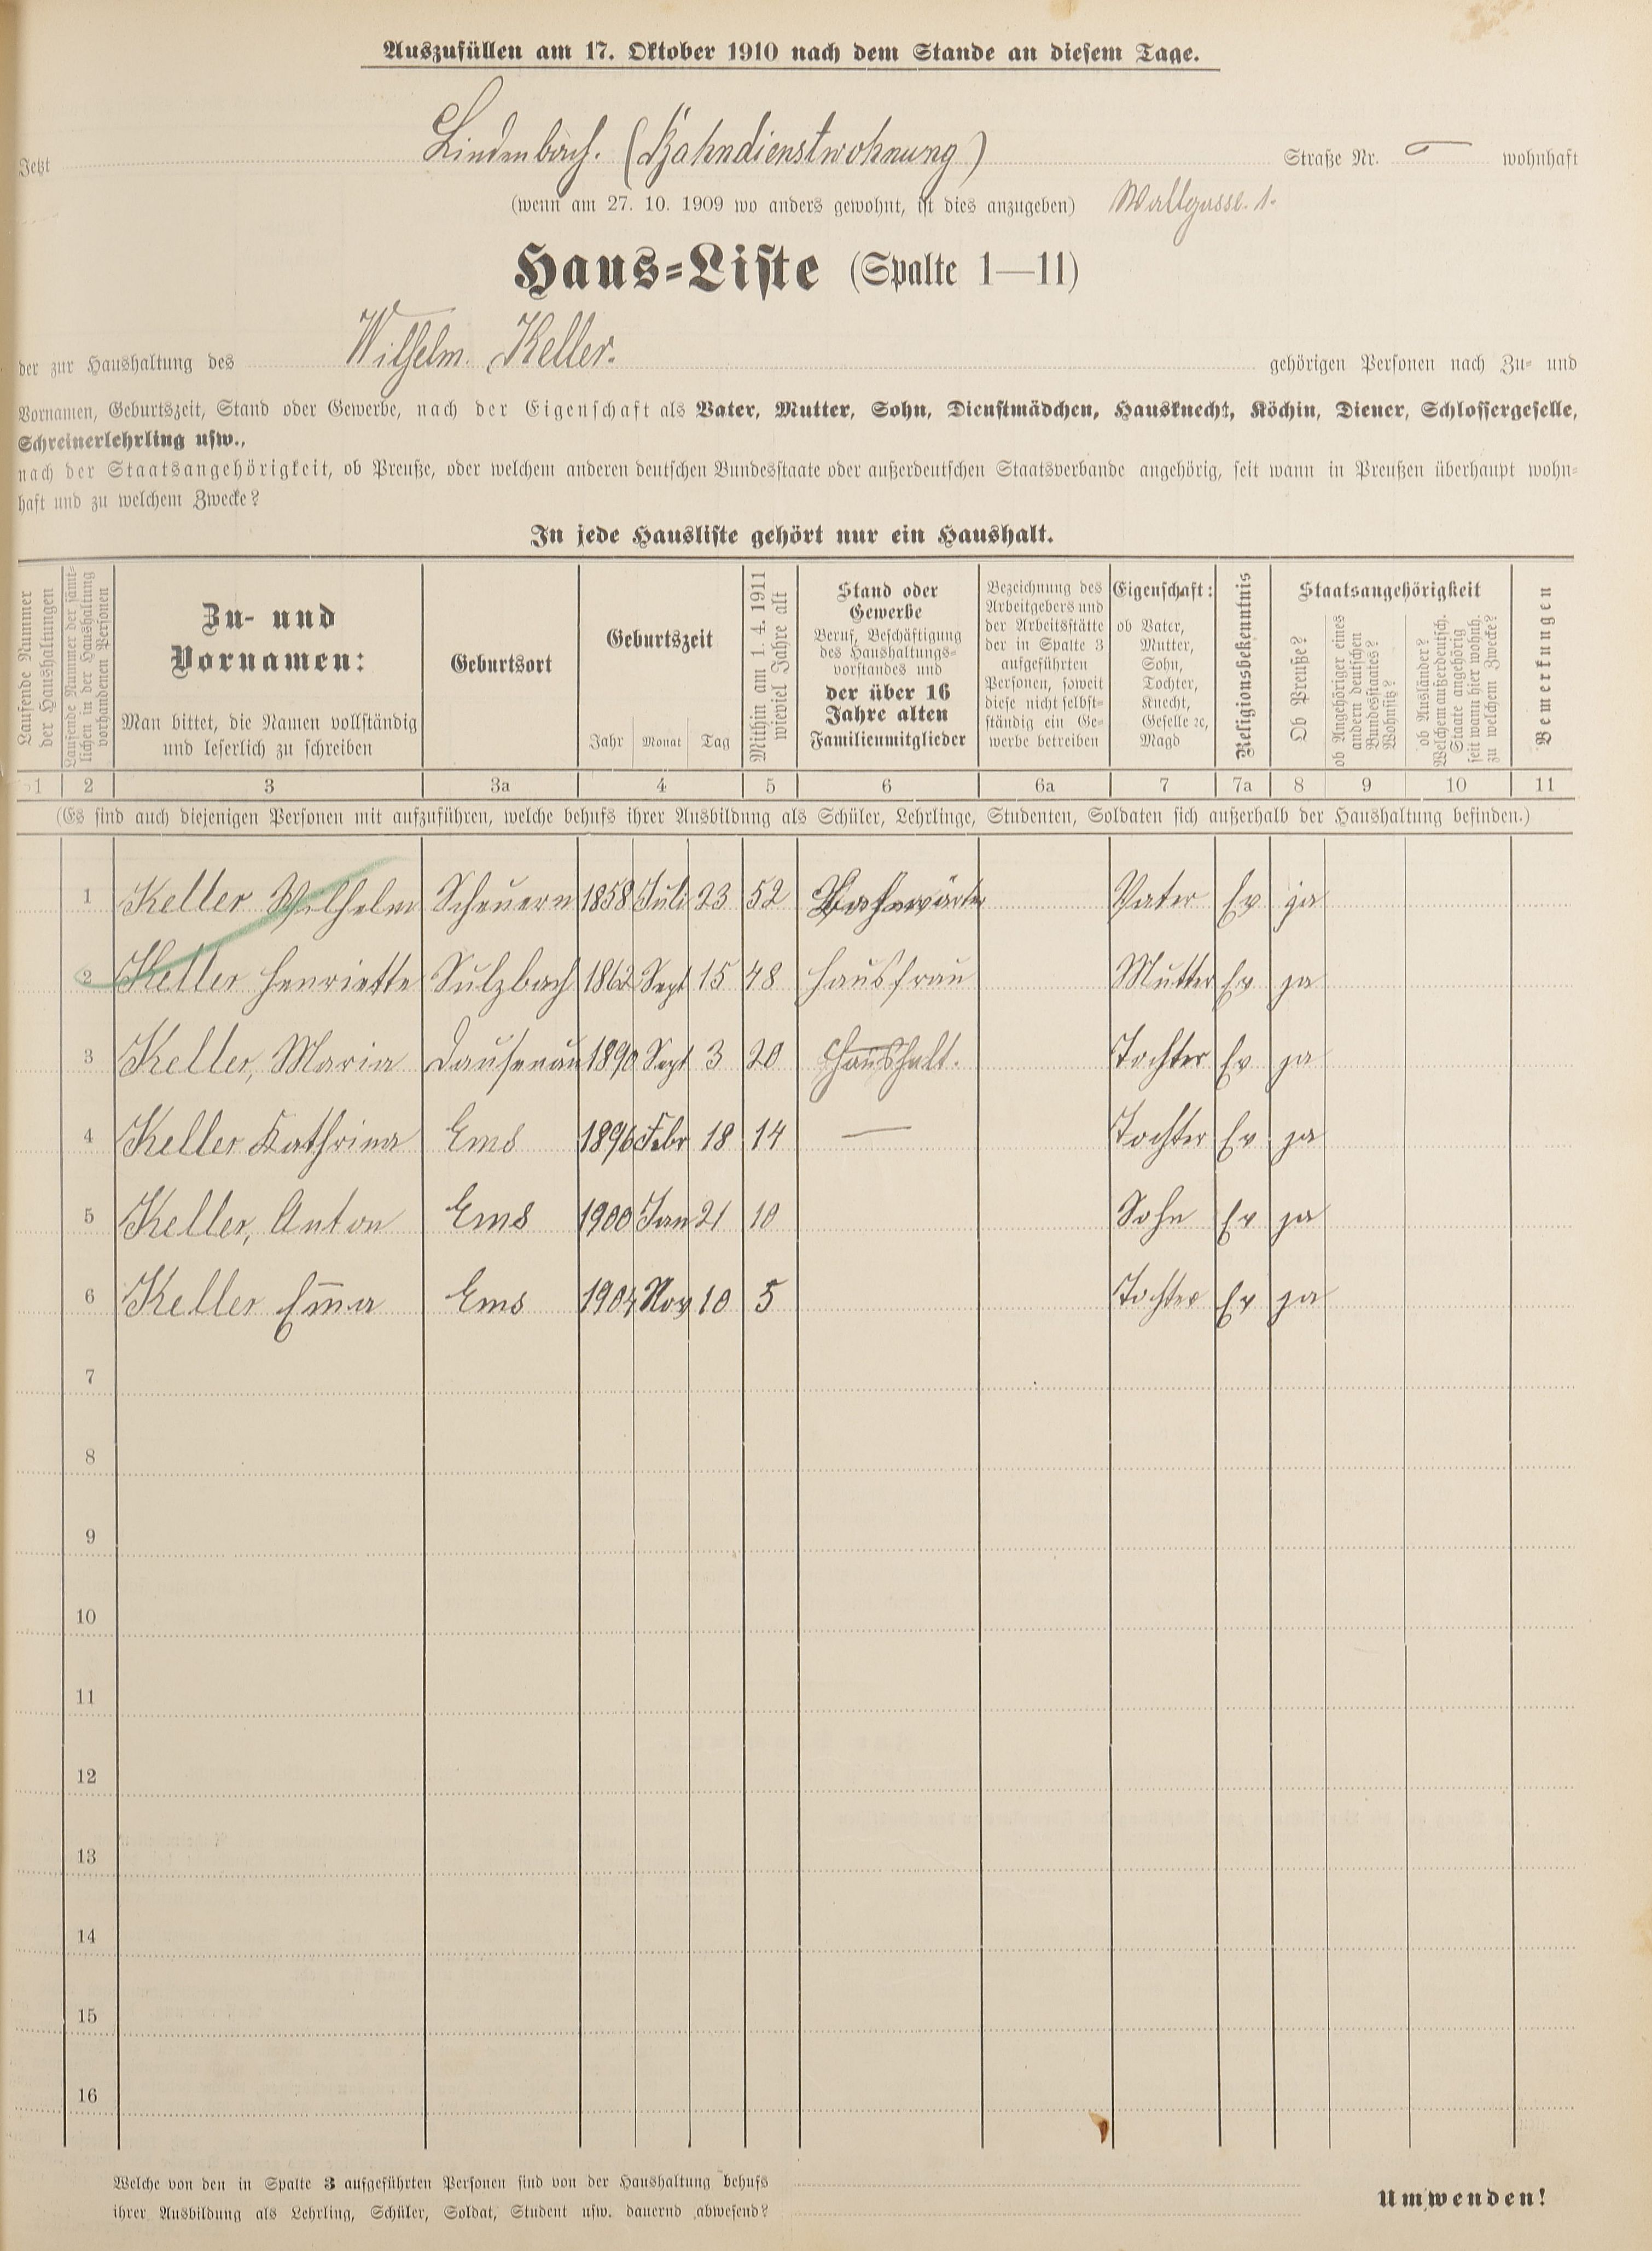 Auszufüllen am 17. Oktober 1910 nach dem Stande an diesem Tage.
Jetzt Lindenbach. (Bahndienstwohnung) Straße Nr. — wohnhaft
(wenn am 27. 10. 1909 wo anders gewohnt, ist dies anzugeben) Wallgasse. 1.
Haus-Liste (Spalte 1—11)
der zur Haushaltung des Wilhelm Keller. gehörigen Personen nach Zu- und
Vornamen, Geburtszeit, Stand oder Gewerbe, nach der Eigenschaft als Vater, Mutter, Sohn, Dienstmädchen, Hausknecht, Köchin, Diener, Schlossergeselle,
Schreinerlehrling usw.,
nach der Staatsangehörigkeit, ob Preuße, oder welchem anderen deutschen Bundesstaate oder außerdeutschen Staatsverbande angehörig, seit wann in Preußen überhaupt wohn-
haft und zu welchem Zwecke?
In jede Hausliste gehört nur ein Haushalt.
Laufende Nummer
der Haushaltungen
Laufende Nummer der sämt-
lichen in der Haushaltung
vorhandenen Personen
Zu- und
Vornamen:
Man bittet, die Namen vollständig
und leserlich zu schreiben
Geburtsort
Geburtszeit
Jahr Monat Tag
Mithin am 1. 4. 1911
wieviel Jahre alt
Stand oder
Gewerbe
Beruf, Beschäftigung
des Haushaltungs-
vorstandes und
der über 16
Jahre alten
Familienmitglieder
Bezeichnung des
Arbeitgebers und
der Arbeitsstätte
der in Spalte 3
aufgeführten
Personen, soweit
diese nicht selbst-
ständig ein Ge-
werbe betreiben
Eigenschaft:
ob Vater,
Mutter,
Sohn,
Tochter,
Knecht,
Geselle ꝛc,
Magd
Religionsbekenntnis
Staatsangehörigkeit
Ob Preuße?
ob Angehöriger eines
andern deutschen
Bundesstaates?
Wohnsitz?
ob Ausländer?
Welchem außerdeutsch.
Staate angehörig
seit wann hier wohnh.
zu welchem Zwecke?
Bemerkungen
1 2 3 3a 4 5 6 6a 7 7a 8 9 10 11
(Es sind auch diejenigen Personen mit aufzuführen, welche behufs ihrer Ausbildung als Schüler, Lehrlinge, Studenten, Soldaten sich außerhalb der Haushaltung befinden.)
1 Keller Wilhelm Scheuern 1858 Juli 23 52 Bahnwärter Vater Ev ja
2 Keller Henriette Sulzbach 1862 Sept 15 48 Hausfrau Mutter Ev ja
3 Keller, Maria Dausenau 1890 Sept 3 20 Haushalt. Tochter Ev ja
4 Keller Kathrina Ems 1896 Febr 18 14 — Tochter Ev ja
5 Keller, Anton Ems 1900 Jan 21 10 Sohn Ev ja
6 Keller Em̅a Ems Nov 10 5 Tochter Ev ja
7
8
9
10
11
12
13
14
15
16
Welche von den in Spalte 3 aufgeführten Personen sind von der Haushaltung behufs
ihrer Ausbildung als Lehrling, Schüler, Soldat, Student usw. dauernd abwesend?
Umwenden!